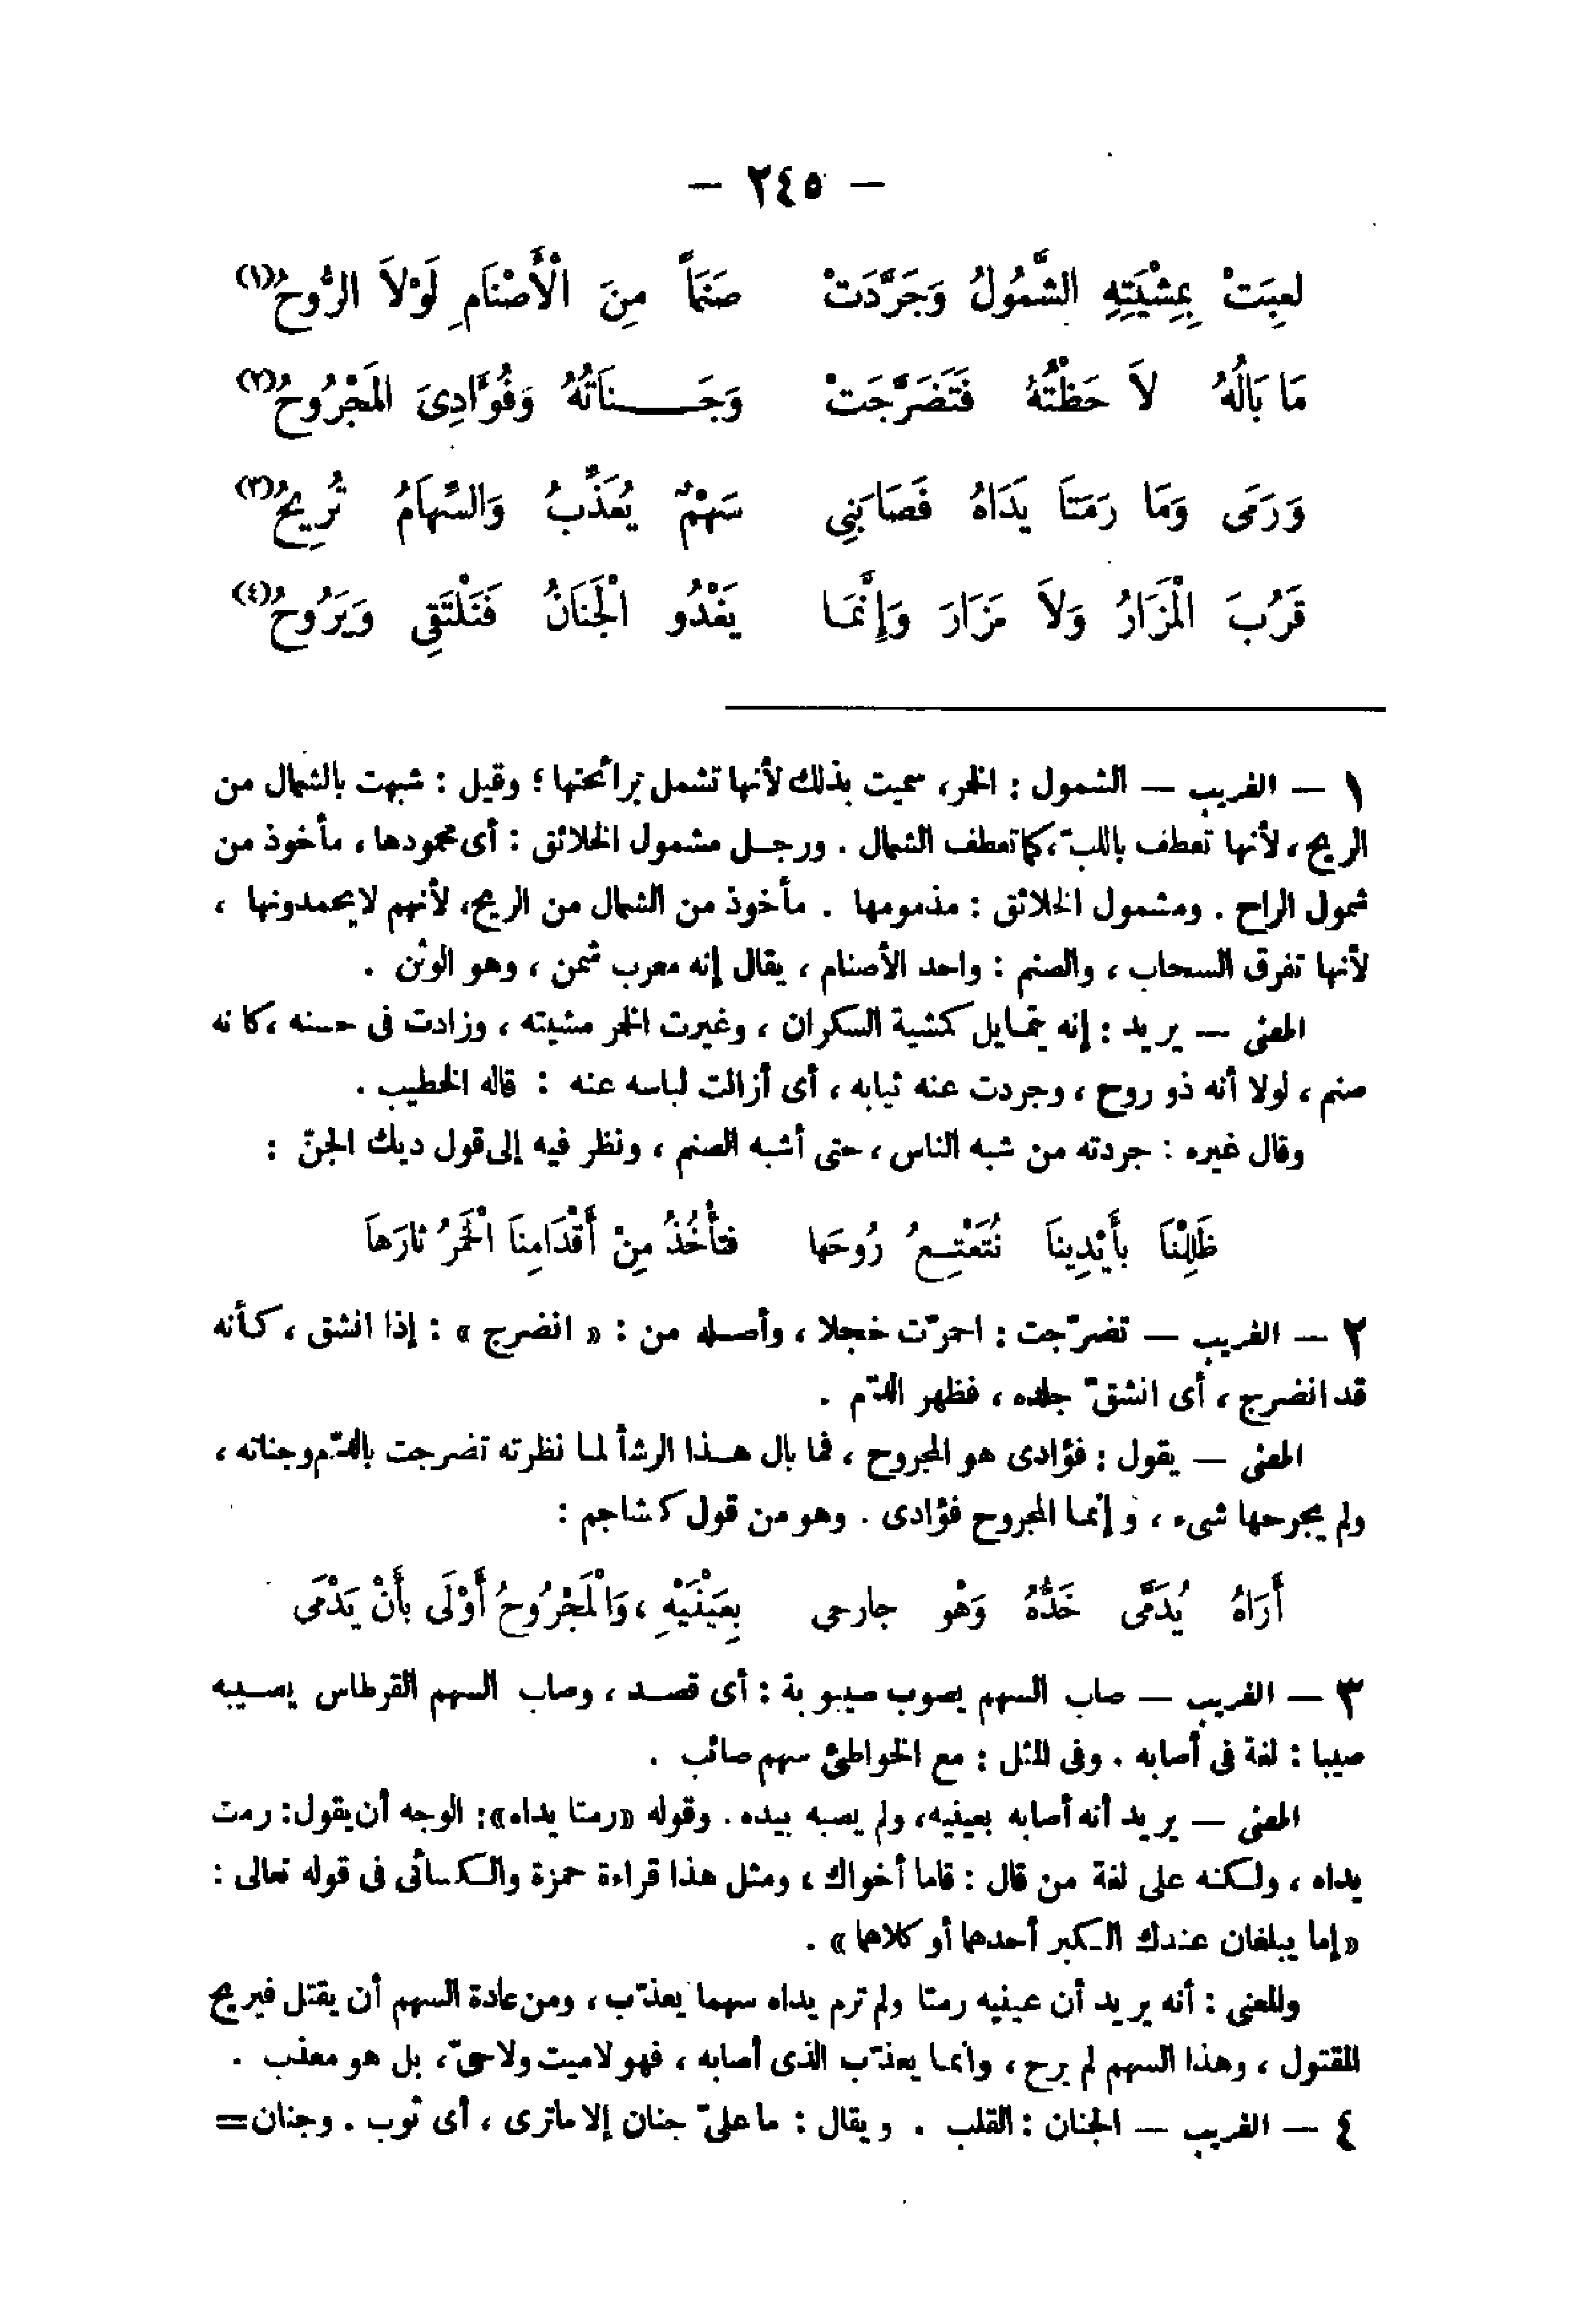 — ٢٤٥ —
لَعِبَتْ بِمِشْيَتِهِ الشَّمُولُ وَجَرَّدَتْ صَنَمَاً مِنَ الْأَصْنَامِ لَوْلاَ الرُّوحُ(١)
مَا بَالُهُ لاَحَظْتُهُ فَتَضَرَّجَتْ وَجَـــنَاتُهُ وَفُؤَادِىَ المَجْرُوحُ(٢)
وَرَمَى وَمَا رَمَتَا يَدَاهُ فَصَابَنِي سَهْمٌ يُعَذِّبُ وَالسِّهَامُ تُرِيحُ(٣)
قَرُبَ الْمَزَارُ وَلاَ مَزَارَ وَإِنَّمَا يَغْدُو الْجَنَانُ فَنَلْتَقِى وَيَرُوحُ(٤)
١ — الغريب — الشمول : الخمر، سميت بذلك لأنها تشمل برائحتها ؛ وقيل : شبهت بالشمال من
الريح ، لأنها تعطف باللبّ ، كما تعطف الشمال . ورجــل مشمول الخلائق : أى محمودها ، مأخوذ من
شمول الراح . ومشمول الخلائق : مذمومها . مأخوذ من الشمال من الريح، لأنهم لا يحمدونها ،
لأنها تفرق السحاب ، والصنم : واحد الأصنام ، يقال إنه معرب شمن ، وهو الوثن .
المعنى — يريد : إنه يتمـايل كمشية السكران ، وغيرت الخمر مشيته ، وزادت فى حسنه ، كانه
صنم ، لولا أنه ذو روح ، وجردت عنه ثيابه ، أى أزالت لباسه عنه : قاله الخطيب .
وقال غيره : جردته من شبه الناس ، حتى أشبه الصنم ، ونظر فيه إلى قول ديك الجنّ :
ظَلِلْنَا بأَيْدِينَا نُتَعْتِـعُ رُوحَها فتأْخُذُ مِنْ أَقْدَامِنَا الْخَمْرُ ثارَهَا
٢ — الغريب — تضرّجت : احمرّت خجلا ، وأصـله من : « انضرج » : إذا انشق ، كـأنه
قد انضرج ، أى انشقّ جلده ، فظهر الدّم .
المعنى — يقول : فؤادى هو المجروح ، فما بال هــذا الرشأ لمـا نظرته تضرجت بالدّم وجناته ،
ولم يجرحها شىء ، وإنمـا المجروح فؤادى . وهو من قول كشاجم :
أَرَاهُ يُدَمَّى خَدُّهُ وَهْو جارحي بِعَيْنَيْهِ ، وَالْمَجْرُوحُ أَوْلَى بأَنْ يَدْمَى
٣ — الغريب — صاب السهم يصوب صيبوبة : أى قصــد ، وصاب السهم القرطاس يصــيبه
صيبا : لغة فى أصابه . وفى المثل : مع الخواطئ سهم صائب .
المعنى — يريد أنه أصابه بعينيه، ولم يصبه بيده . وقوله «رمتا يداه»: الوجه أن يقول: رمت
يداه ، ولـكنه على لغة من قال : قاما أخواك ، ومثل هذا قراءة حمزة والـكسائى فى قوله تعالى :
«إما يبلغان عندك الـكبر أحدهما أو كلاهما» .
والمعنى : أنه يريد أن عينيه رمتا ولم ترم يداه سهما يعذّب ، ومن عادة السهم أن يقتل فيريح
المقتول ، وهذا السهم لم يرح ، وانمـا يعذّب الذى أصابه ، فهو لا ميت ولا حىّ ، بل هو معذب .
٤ — الغريب — الجنان : القلب . ويقال : ما علىّ جنان إلا ماترى ، أى ثوب . وجنان=